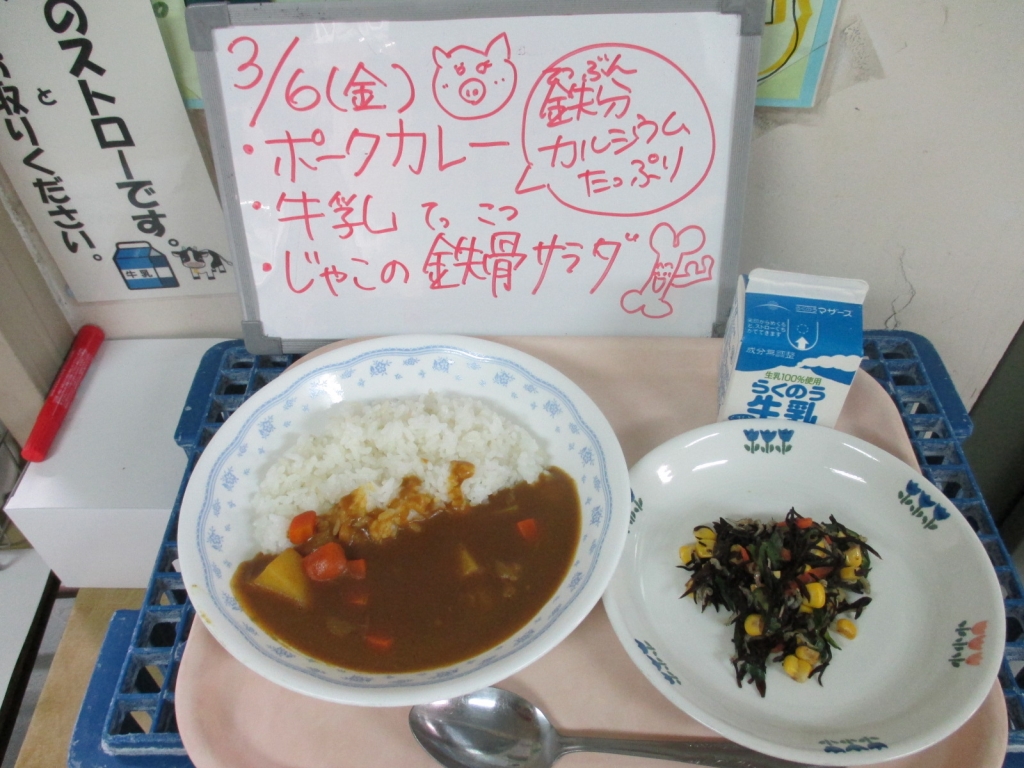 のストローです。
お取りください。
と
牛乳
3/6(金)
・ポークカレー
・牛乳
てっこつ
・じゃこの鉄骨サラダ
ぶん
鉄分
カルシウム
たっぷり
マザーズ
成分無調整
生乳100%使用
らくのう
牛乳